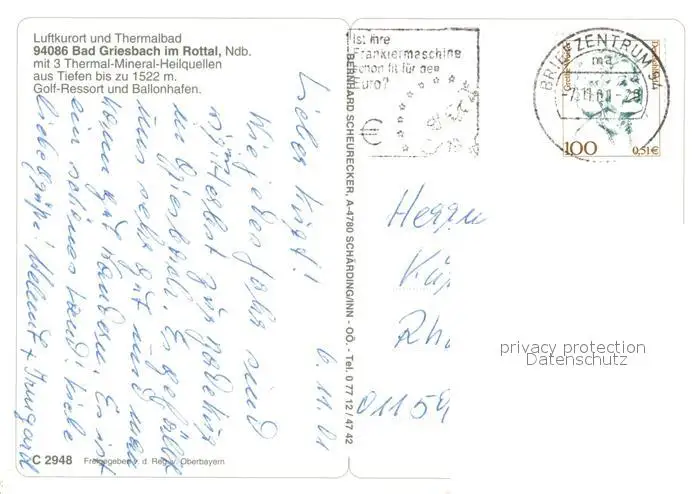 Luftkurort und Thermalbad
94086 Bad Griesbach im Rottal, Ndb.
mit 3 Thermal-Mineral-Heilquellen
aus Tiefen bis zu 1522 m.
Golf-Ressort und Ballonhafen.
6. 11. 01
Lieber
Wie jedes Jahr sind
wir im Herbst zur Badekur
in Griesbach. Es gefällt
uns sehr gut und man
kann gut wandern. Es ist
ein schönes Land! Viele
liebe Grüße! Helmut + Irmgard
C 2948 Freigegeben d. Reg. v. Oberbayern
BERNHARD SCHEURECKER, A-4780 SCHÄRDING/INN - OÖ. - Tel. 0 77 12 / 47 42
Ist Ihre
Frankiermaschine
schon fit für den
Euro?
€
BRIEFZENTRUM
ma
-7.11.01-
100 0,51€
Herrn
Rh
01159
privacy protection
Datenschutz